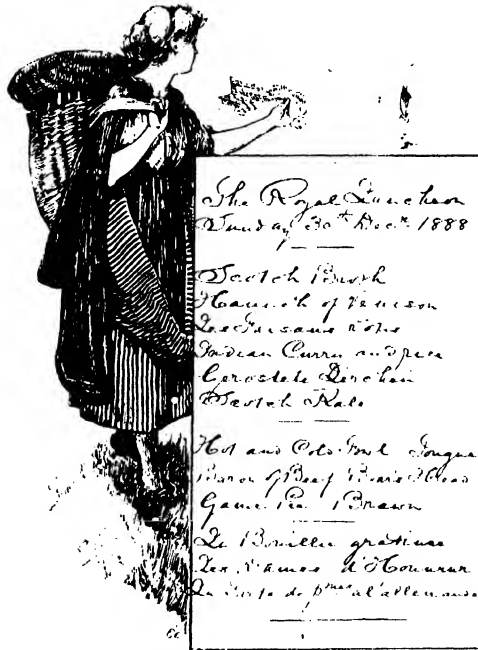 The Royal Luncheon
Sunday 30th Decr 1888
Scotch Broth
Haunch of Venison
Les Faisans rotis
Indian Curry and rice
Gerostete Lerchen
Scotch Kale
Hot and Cold Fowl Tongue
Baron of Beef Boar's Head
Game Pie Brawn
La Bouillie gratinee
Les Dames d'Honneur
La de pmes a l'allemande